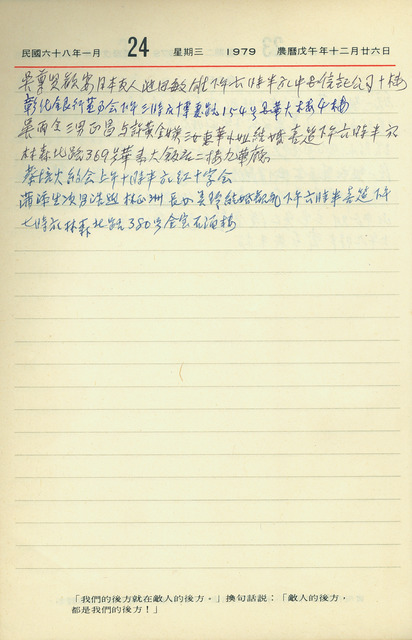 民國六十八年一月 24 星期三 1979 農曆戊午年十二月廿六日
吳尊賢歡宴日本友人池田敏雄下午六時半於中央信託公司十樓
彰化銀行董事會下午三時於博愛路154號大樓4樓
吳雨全三男正昌與許黃金 三女東華小姐結婚喜筵下午六時半於
林森北路369號華泰大飯店二樓九華廳
蔡培火約會上午十時半於紅十字會
次男 與林 洲長女美 結婚 下午六時半喜筵下午
七時於林森北路380號金 酒樓
「我們的後方就在敵人的後方。」換句話說：「敵人的後方，
都是我們的後方！」